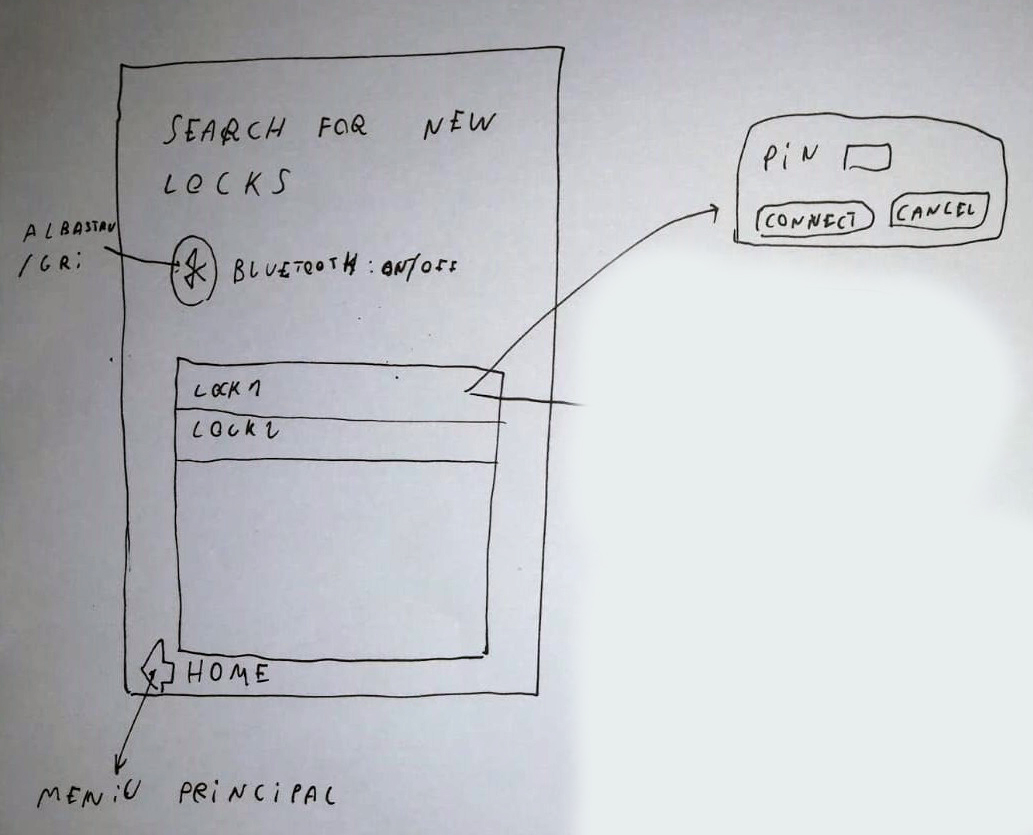 SEARCH FOR NEW
LOCKS
ALBASTRU
/GRi
BLUETOOTH: ON/OFF
LOCK1
LOCK2
HOME
MENiU PRiNCiPAL
PiN
CONNECT
CANCEL